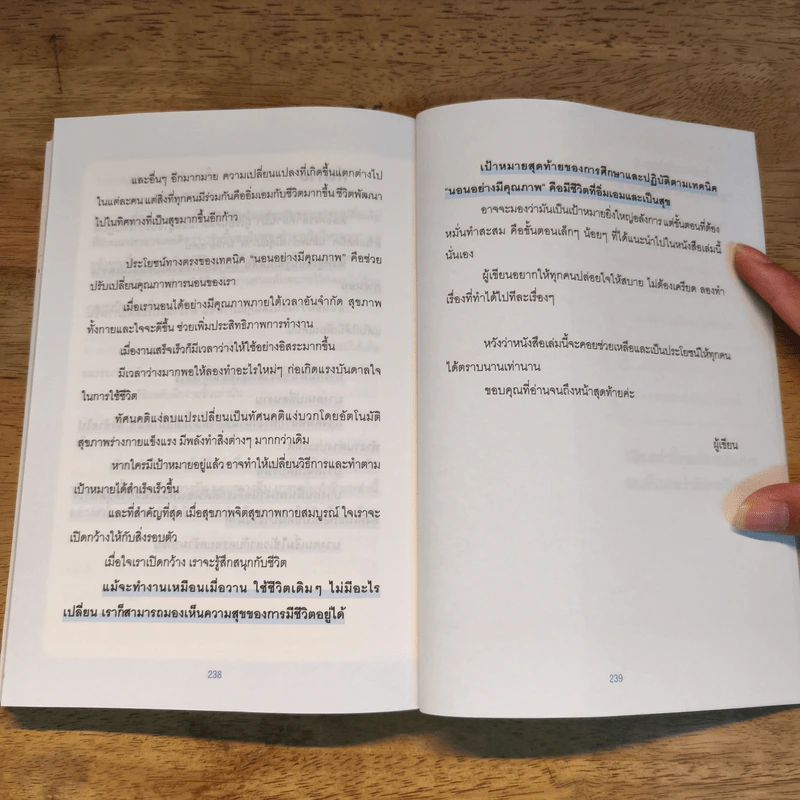 และอื่นๆ อีกมากมาย ความเปลี่ยนแปลงที่เกิดขึ้นแตกต่างไป
ในแต่ละคน แต่สิ่งที่ทุกคนมีร่วมกันคืออิ่มเอมกับชีวิตมากขึ้น ชีวิตพัฒนา
ไปในทิศทางที่เป็นสุขมากขึ้นอีกก้าว
ประโยชน์ทางตรงของเทคนิค “นอนอย่างมีคุณภาพ” คือช่วย
ปรับเปลี่ยนคุณภาพการนอนของเรา
เมื่อเรานอนได้อย่างมีคุณภาพภายใต้เวลาอันจำกัด สุขภาพ
ทั้งกายและใจจะดีขึ้น ช่วยเพิ่มประสิทธิภาพการทำงาน
เมื่องานเสร็จเร็วก็มีเวลาว่างให้ใช้อย่างอิสระมากขึ้น
มีเวลาว่างมากพอให้ลองทำอะไรใหม่ๆ ก่อเกิดแรงบันดาลใจ
ในการใช้ชีวิต
ทัศนคติแง่ลบแปรเปลี่ยนเป็นทัศนคติแง่บวกโดยอัตโนมัติ
สุขภาพร่างกายแข็งแรง มีพลังทำสิ่งต่างๆ มากกว่าเดิม
หากใครมีเป้าหมายอยู่แล้ว อาจทำให้เปลี่ยนวิธีการและทำตาม
เป้าหมายได้สำเร็จเร็วขึ้น
และที่สำคัญที่สุด เมื่อสุขภาพจิตสุขภาพกายสมบูรณ์ ใจเราจะ
เปิดกว้างให้กับสิ่งรอบตัว
เมื่อใจเราเปิดกว้าง เราจะรู้สึกสนุกกับชีวิต
แม้จะทำงานเหมือนเมื่อวาน ใช้ชีวิตเดิมๆ ไม่มีอะไร
เปลี่ยน เราก็สามารถมองเห็นความสุขของการมีชีวิตอยู่ได้
238
เป้าหมายสุดท้ายของการศึกษาและปฏิบัติตามเทคนิค
“นอนอย่างมีคุณภาพ” คือมีชีวิตที่อิ่มเอมและเป็นสุข
อาจจะมองว่ามันเป็นเป้าหมายยิ่งใหญ่อลังการ แต่ขั้นตอนที่ต้อง
หมั่นทำสะสม คือขั้นตอนเล็กๆ น้อยๆ ที่ได้แนะนำไปในหนังสือเล่มนี้
นั่นเอง
ผู้เขียนอยากให้ทุกคนปล่อยใจให้สบาย ไม่ต้องเครียด ลองทำ
เรื่องที่ทำได้ไปทีละเรื่องๆ
หวังว่าหนังสือเล่มนี้จะคอยช่วยเหลือและเป็นประโยชน์ให้ทุกคน
ได้ตราบนานเท่านาน
ขอบคุณที่อ่านจนถึงหน้าสุดท้ายค่ะ
ผู้เขียน
239